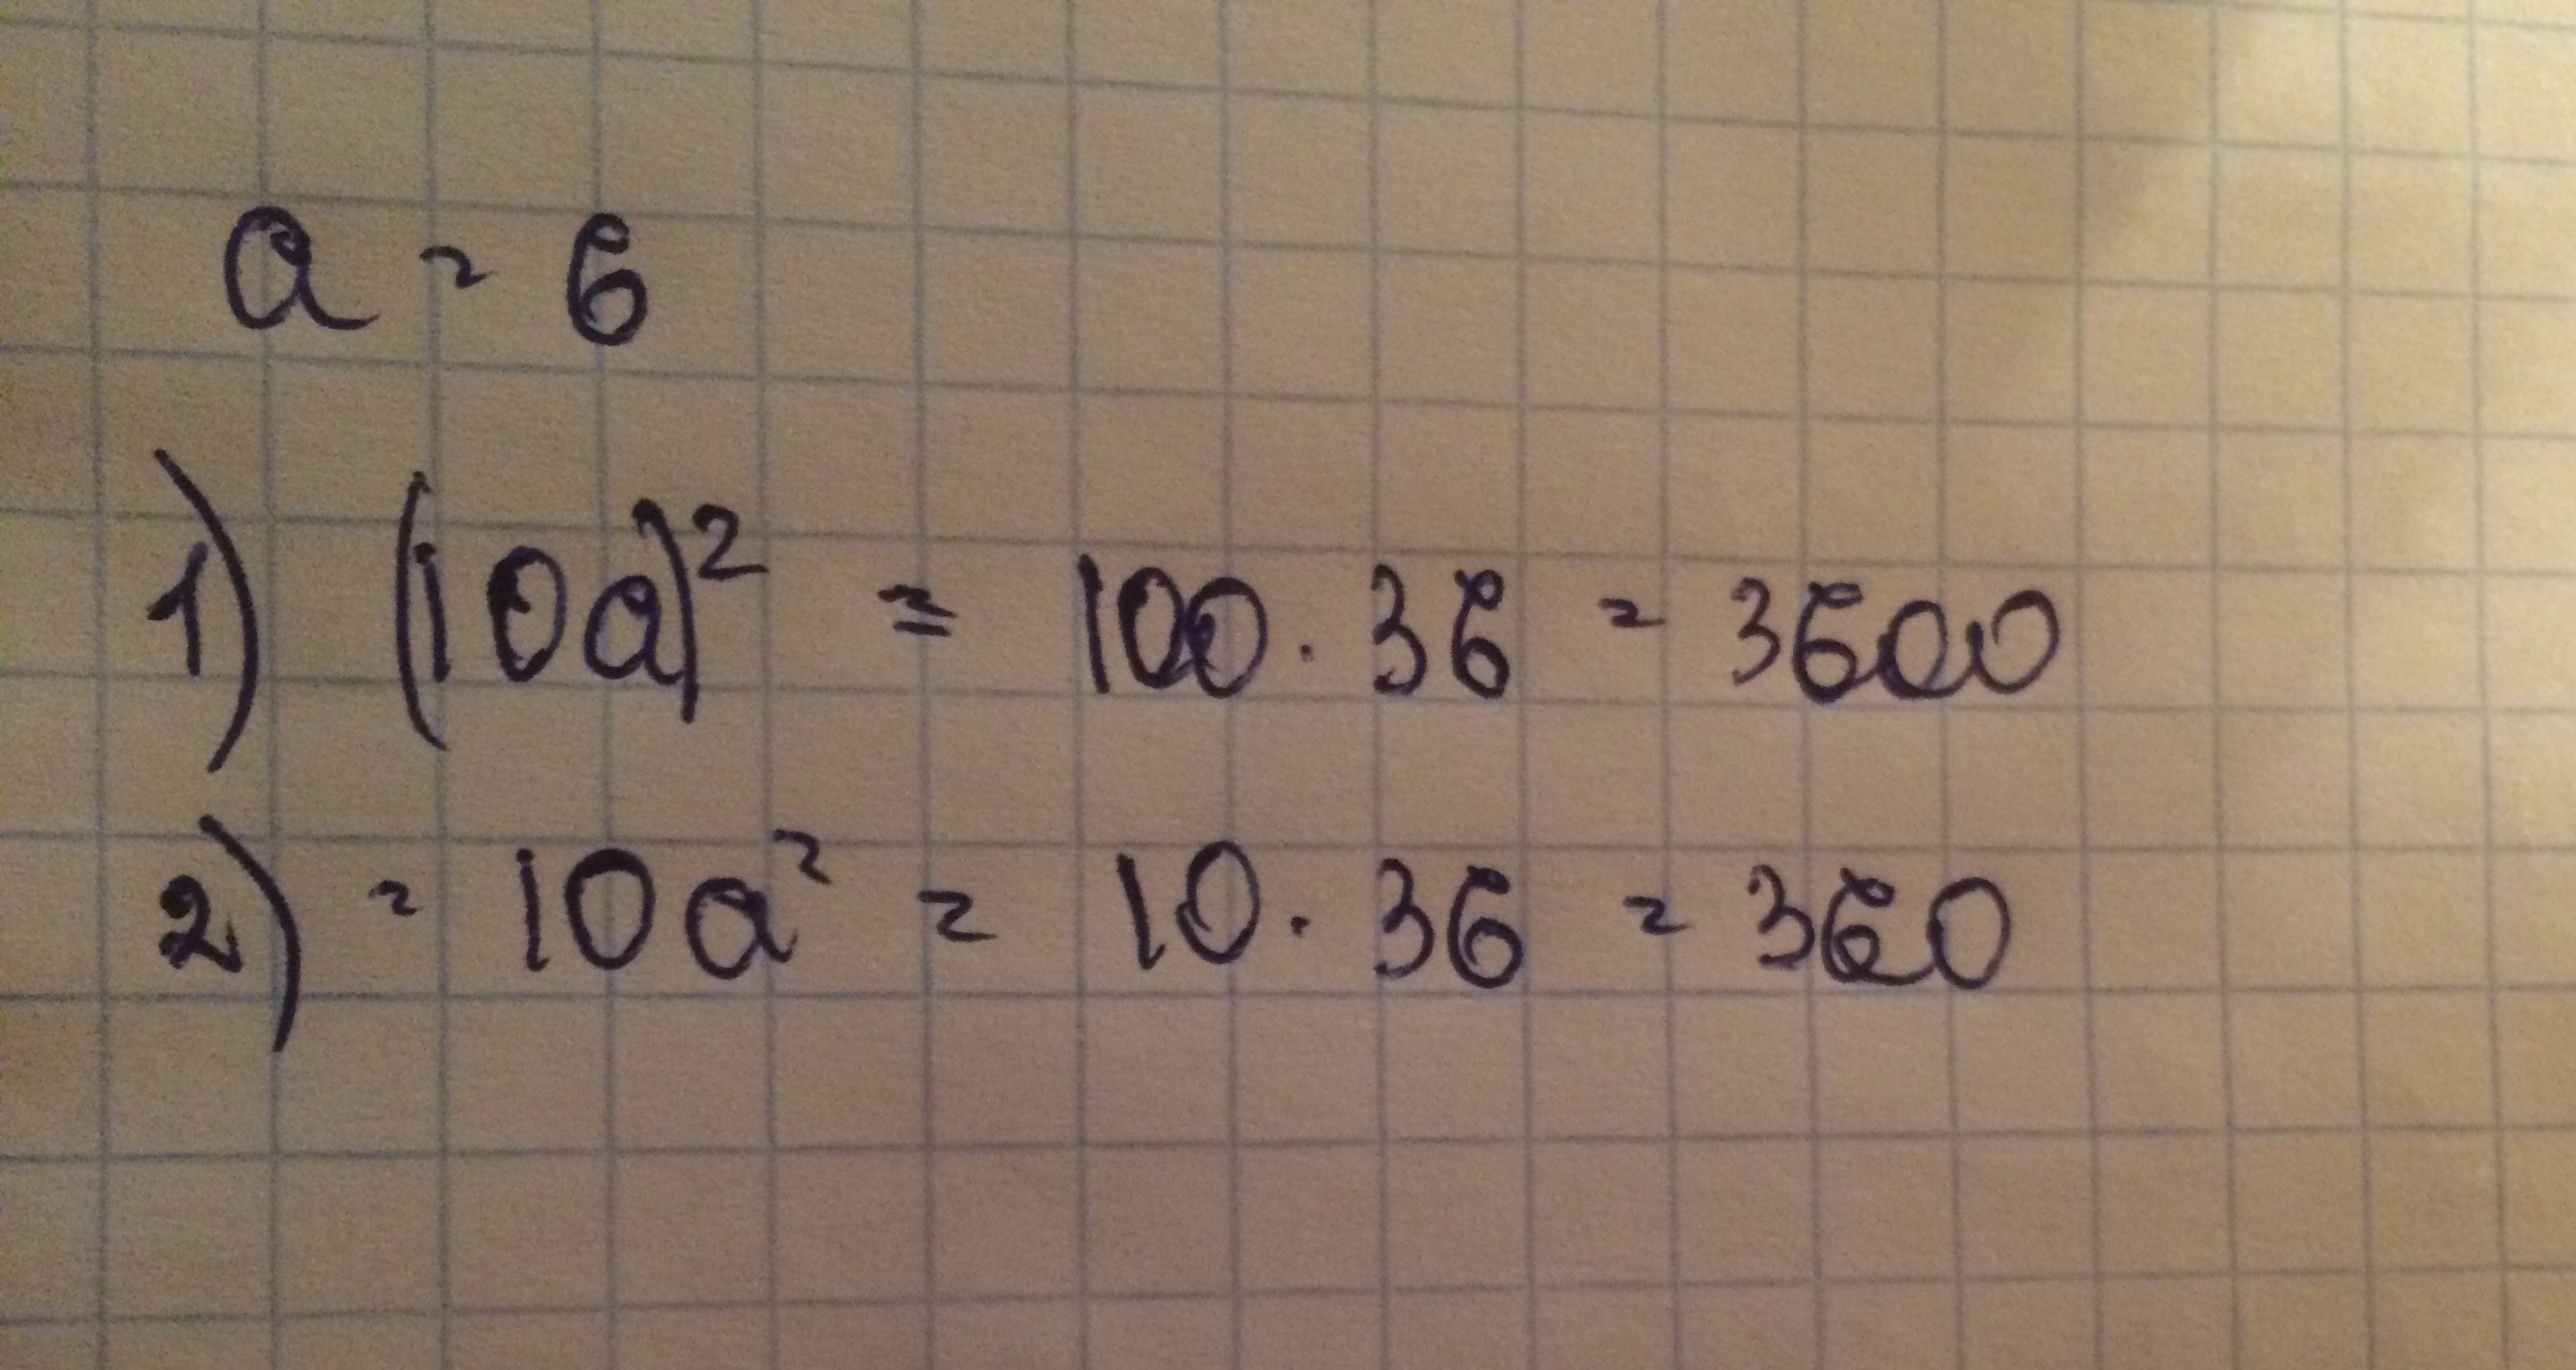 a = 6
1) (10a)² = 100 · 36 = 3600
2) = 10a² = 10 · 36 = 360